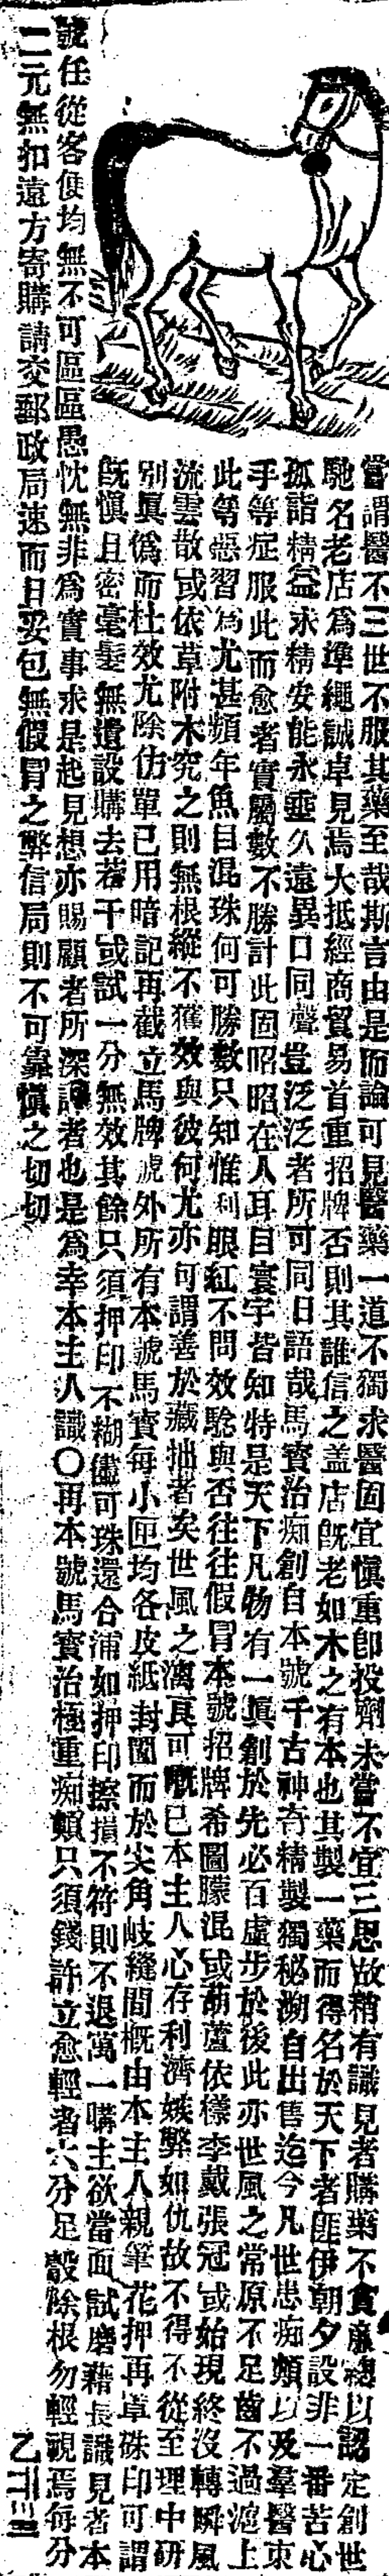 嘗謂醫不三世不服其藥至哉斯言由是而論可見醫藥一道不獨求醫固宜愼重卽投劑未嘗不宜三思故稍有識見者購藥不貪廉總以認定創世
馳名老店爲準繩誠卓見焉大抵經商貿易首重招牌否則其誰信之盖店旣老如木之有本也其製一藥而得名於天下者匪伊朝夕設非一番苦心
孤詣精益求精安能永垂久遠異口同聲豈泛泛者所可同日語哉馬寳治痴創自本號千古神奇精製獨秘溯自出售迄今凡世患痴癲以及羣醫束
手等症服此而愈者實屬數不勝計此固昭昭在人耳目寰宇皆知特是天下凡物有一眞創於先必百虛步於後此亦世風之常原不足齒不過滬上
此等惡習爲尤甚頻年魚目混珠何可勝數只知惟利眼紅不問效騐與否往往假冒本號招牌希圖朦混或葫蘆依樣李戴張冠或始現終沒轉瞬風
流雲散或依草附木究之則無根縱不獲效與彼何尤亦可謂善於藏拙者矣世風之漓眞可慨已本主人心存利濟嫉弊如仇故不得不從至理中研
別眞僞而杜效尤除仿單已用暗記再截立馬牌號外所有本號馬寳每小匣均各皮紙封固而於尖角岐縫間概由本主人親筆花押再章硃印可謂
旣愼且密毫髮無遺設購去若干或試一分無效其餘只須押印不糊儘可珠還合浦如押印擦損不符則不退萬一購主欲當面試磨藉長識見者本
號任從客便均無不可區區愚忱無非爲實事求是起見想亦賜顧者所深諒者也是爲幸本主人識〇再本號馬寳治極重痴癲只須錢許立愈輕者六分足彀除根勿輕視焉每分
二元無扣遠方寄購請交郵政局速而且妥包無假冒之弊信局則不可靠愼之切切